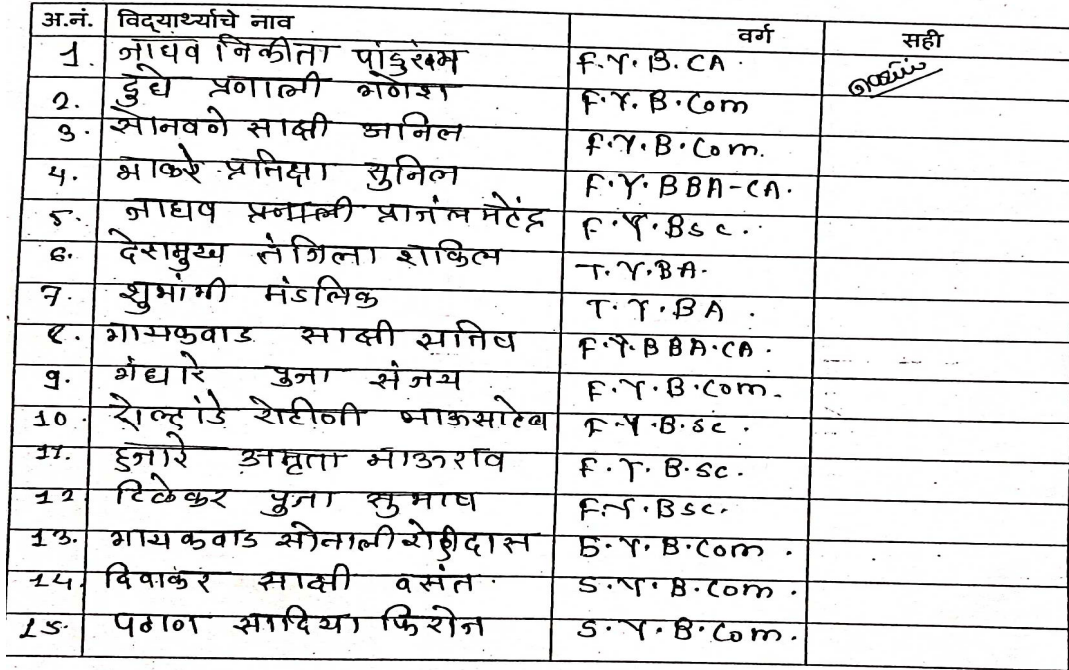 अ.नं. विद्यार्थ्याचे नाव वर्ग सही
1. जाधव निकीता पांडुरंग F.Y.B.CA.
2. दुधे प्रणाली गणेश F.Y.B.Com
3. सोनवने साक्षी अनिल F.Y.B.Com.
4. भाकरे प्रतिक्षा सुनिल F.Y.BBA-CA.
5. जाधव प्रनाली प्रांजल महेंद्र F.Y.Bsc.
6. देशमुख तंजिला शकिल T.Y.BA.
7. शुभांगी मंडलिक T.Y.BA.
8. गायकवाड साक्षी F.Y.BBA.CA.
9. गंधारे पुजा संजय F.Y.B.Com.
10. रोहीणी भाऊसाहेब F.Y.B.sc.
11. हजारे अमृता भाऊराव F.Y.B.sc.
12. टिळेकर पुजा सुभाष F.Y.Bsc.
13. गायकवाड सोनाली रोहीदास S.Y.B.Com.
14. दिवाकर साक्षी वसंत. S.Y.B.Com.
15. पठाण सादिया फिरोज S.Y.B.Com.